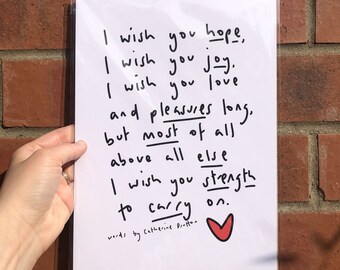 I wish you hope,
I wish you joy,
I wish you love
and pleasures long,
but most of all
above all else
I wish you strength
to carry on.
words by Catherine